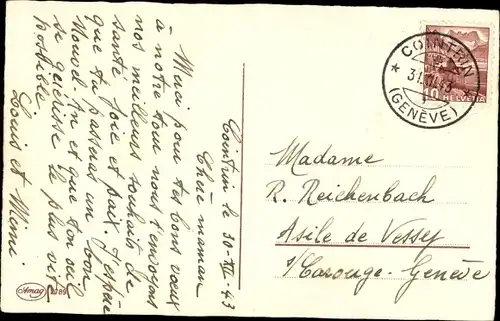 Cointrin le 30-XII-43
Chère maman
Merci pour tes bons vœux
à notre tour nous t'envoyons
nos meilleurs souhaits de
santé joie et paix. J'espère
que tu passeras un bon
Nouvel-An et que ton œil
se guérisse le plus vite
possible.
Louis et Mimi
COINTRIN
31.XII.43
(GENÈVE)
10 HELVETIA
Madame
R. Reichenbach
Asile de Vessy
s/Carouge-Genève
Amag